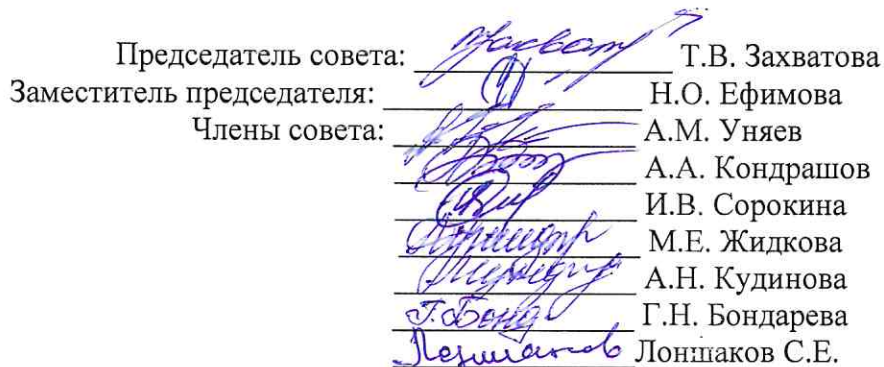 Председатель совета: Т.В. Захватова
Заместитель председателя: Н.О. Ефимова
Члены совета: А.М. Уняев
А.А. Кондрашов
И.В. Сорокина
М.Е. Жидкова
А.Н. Кудинова
Г.Н. Бондарева
Лоншаков С.Е.